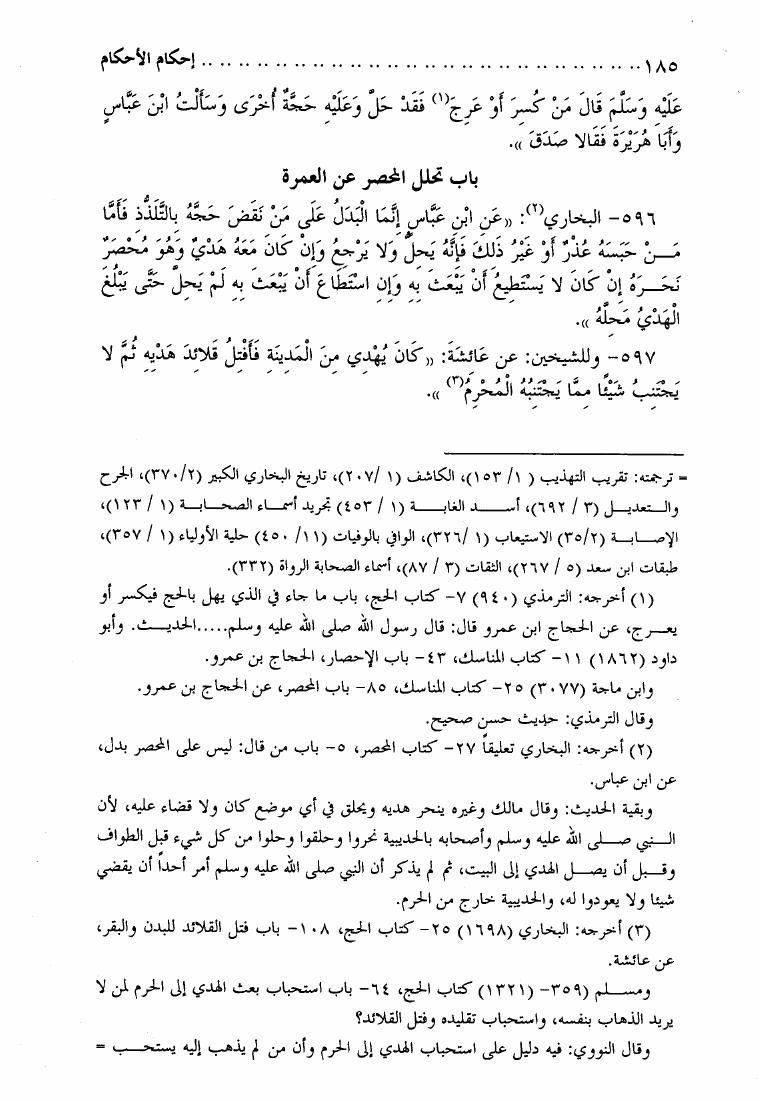 ١٨٥ .................................................. إحكام الأحكام
عَلَيْهِ وَسَلَّمَ قَالَ مَنْ كُسِرَ أَوْ عَرِجَ(١) فَقَدْ حَلَّ وَعَلَيْهِ حَجَّةٌ أُخْرَى وَسَأَلْتُ ابْنَ عَبَّاسٍ
وَأَبَا هُرَيْرَةَ فَقَالا صَدَقَ ».
باب تحلل المحصر عن العمرة
٥٩٦- البخاري(٢): «عَن ابْنِ عَبَّاسٍ إِنَّمَا الْبَدَلُ عَلَى مَنْ نَقَضَ حَجَّهُ بِالتَّلَذُّذِ فَأَمَّا
مَـــنْ حَبَسَهُ عُذْرٌ أَوْ غَيْرُ ذَلِكَ فَإِنَّهُ يَحِلُّ وَلا يَرْجِعُ وَإِنْ كَانَ مَعَهُ هَدْيٌ وَهُوَ مُحْصَرٌ
نَحَـــرَهُ إِنْ كَانَ لا يَسْتَطِيعُ أَنْ يَبْعَثَ بِهِ وَإِن اسْتَطَاعَ أَنْ يَبْعَثَ بِهِ لَمْ يَحِلَّ حَتَّى يَبْلُغَ
الْهَدْيُ مَحِلَّهُ ».
٥٩٧- وللشيخين: عن عَائشَةَ: « كَانَ يُهْدِي مِنَ الْمَدِينَةِ فَأَفْتِلُ قَلائِدَ هَدْيِهِ ثُمَّ لا
يَجْتَنِبُ شَيْئًا مِمَّا يَجْتَنِبُهُ الْمُحْرِمُ(٣) ».
= ترجمته: تقريب التهذيب ( ١/ ١٥٣)، الكاشف (١ /٢٠٧)، تاريخ البخاري الكبير (٢/ ٣٧٠)، الجرح
والـــتعديـــل (٣ / ٦٩٢)، أســـد الغابـــة (١ / ٤٥٣) تجريد أسمـــاء الصحـــابـــة (١ / ١٢٣)،
الإصـــابـــة (٢/ ٣٥) الاستيعاب (١ /٣٢٦)، الوافي بالوفيات (١١/ ٤٥٠) حلية الأولياء (١ / ٣٥٧)،
طبقات ابن سعد (٥ / ٢٦٧)، الثقات (٣ / ٨٧)، أسماء الصحابة الرواة (٣٣٢).
(١) أخرجه: الترمذي (٩٤٠) ٧- كتاب الحج، باب ما جاء في الذي يهل بالحج فيكسر أو
يعـــرج، عن الحجاج ابن عمرو قال: قال رسول الله صلى الله عليه وسلم.....الحديـــث. وأبو
داود (١٨٦٢) ١١- كتاب المناسك، ٤٣- باب الإحصار، الحجاج بن عمرو.
وابن ماجة (٣٠٧٧) ٢٥- كتاب المناسك، ٨٥- باب المحصر، عن الحجاج بن عمرو.
وقال الترمذي: حديث حسن صحيح.
(٢) أخرجه: البخاري تعليقاً ٢٧- كتاب المحصر، ٥- باب من قال: ليس على المحصر بدل،
عن ابن عباس.
وبقية الحديث: وقال مالك وغيره ينحر هديه ويحلق في أي موضع كان ولا قضاء عليه، لأن
الـــنبي صـــلى الله عليه وسلم وأصحابه بالحديبية نحروا وحلقوا وحلوا من كل شيء قبل الطواف
وقـــبل أن يصـــل الهدي إلى البيت، ثم لم يذكر أن النبي صلى الله عليه وسلم أمر أحداً أن يقضي
شيئا ولا يعودوا له، والحديبية خارج من الحرم.
(٣) أخرجه: البخاري (١٦٩٨) ٢٥- كتاب الحج، ١٠٨- باب فتل القلائد للبدن والبقر،
عن عائشة.
ومســـلم (٣٥٩- (١٣٢١) كتاب الحج، ٦٤- باب استحباب بعث الهدي إلى الحرم لمن لا
يريد الذهاب بنفسه، واستحباب تقليده وفتل القلائد؟
وقال النووي: فيه دليل على استحباب الهدي إلى الحرم وأن من لم يذهب إليه يستحـــب =